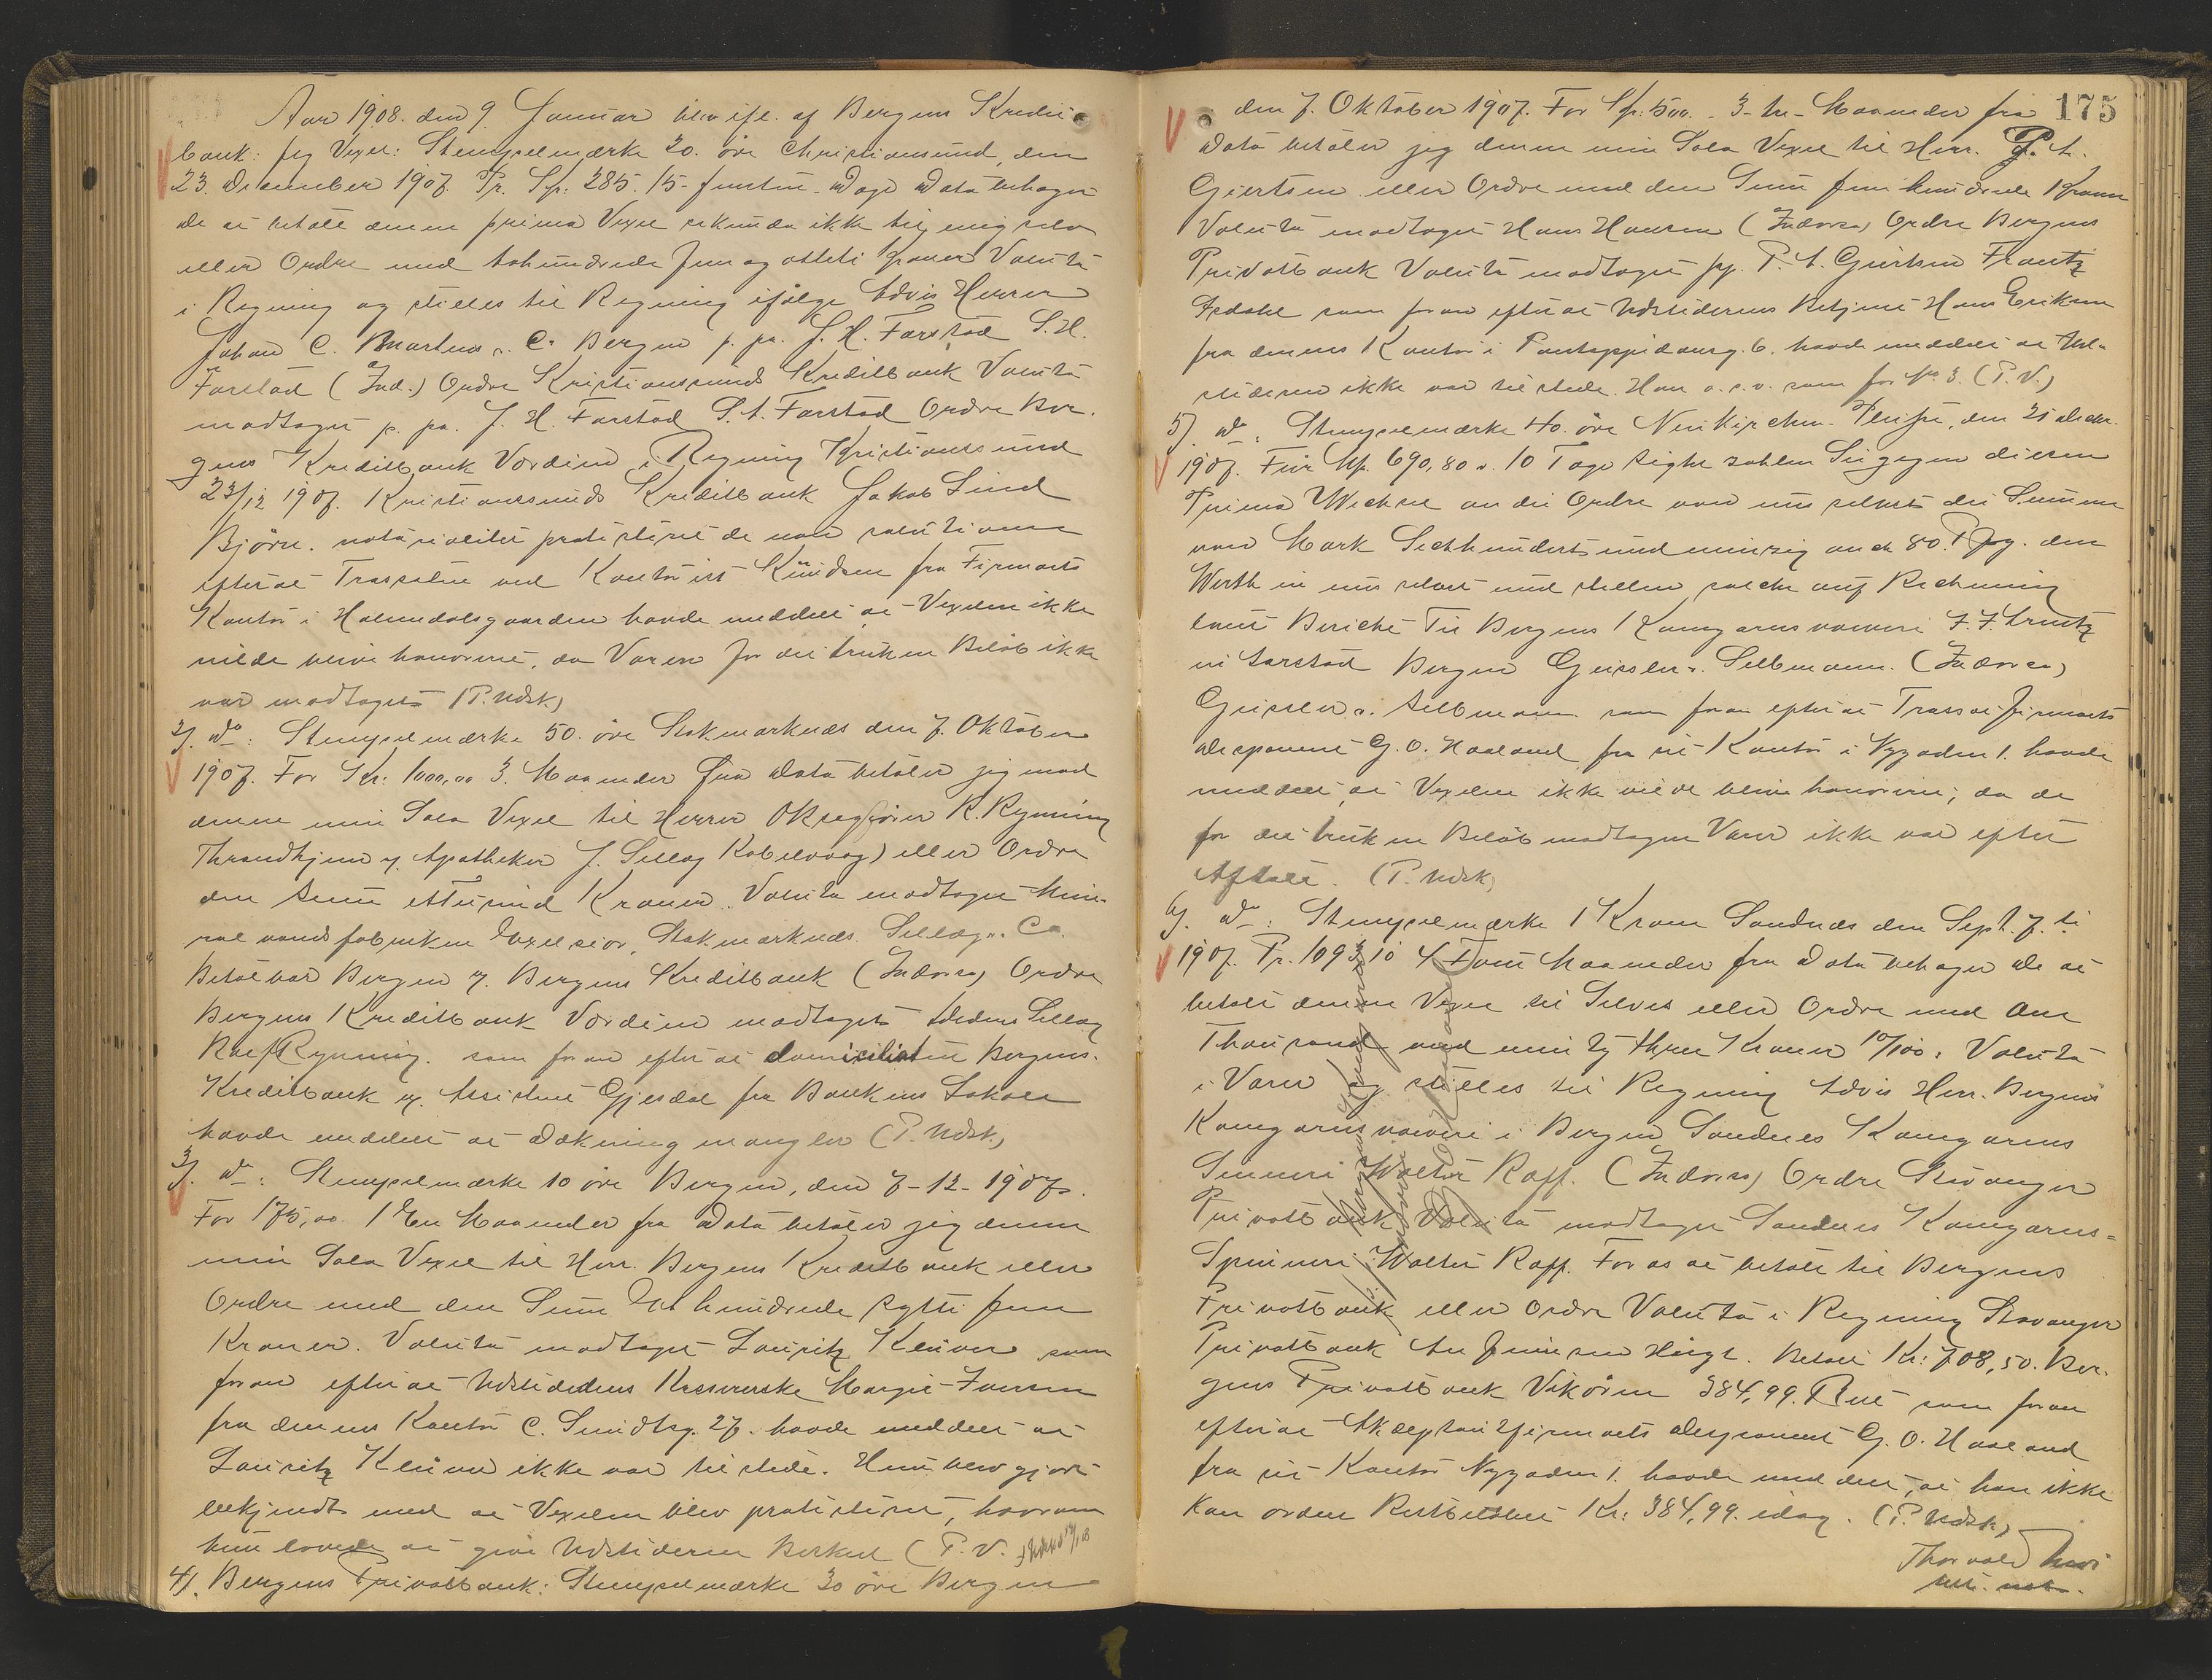 Aar 1908. den 9. Januar blev ifl. af Bergens Kredit-
bank: fig Vexel: Stempelmærke 30. øre Christiansund, den
23. December 1907. Pr. Kr: 285. 15- femten- Dage Dato behager
De at betale denne prima Vexel sekunda ikke til mig selv
eller Ordre med tohundrede fem og otteti Kroner Valuta
i Regning og stilles til Regning ifølge Advis Herrer
Johan C. Martens & Co Bergen p. pa. J. H. Farstad S. H.
Farstad (Ind.) Ordre Kristianssunds Kreditbank Valuta
modtaget p. pa. J. H. Farstad S. A. Farstad Ordre Ber-
gens Kreditbank Værdien i Regning Kristianssund
23/12 1907. Kristianssunds Kreditbank Jakob Lind
Bjørn. notarialiter protesteret de non solutione
efterat Trassaten ved Kontorist Knudsen fra Firmaets
Kontor i Holmedalsgaarden havde meddelt at Vexelen ikke
vilde blive honoreret, da Varen for det trukne Beløb ikke
var modtaget (P. Udsk.)
2). Do: Stempelmærke 50. øre Stokmarknæs den 7. Oktober
1907. For Kr: 1000,00 3. Maaneder fra Dato betaler jeg mod
denne min Sola Vexel til Herrer O R. Rynning
Throndhjem og Apotheker J. Sellæg Kabelvaag) eller Ordre
den Sum ettusind Kroner. Valuta modtaget Mine-
ralvandsfabriken Excelsior, Stokmarknæs Sellæg & Co.
Betalbar Bergen v. Bergens Kreditbank (Indorso) Ordre
Bergens Kreditbank Værdien modtaget Sellæg
Rynning. som foran efter at domiciliaten Bergens
Kreditbank v. Assistent Gjesdal fra Bankens Lokale
havde meddelt at Dækning mangler (P. Udsk.)
3). Do: Stempelmærke 10 øre Bergen, den 7-12-1907.
For 175,00. 1 En Maaneder fra Dato betaler jeg denne
min Sola Vexel til Herr. Bergens Kreditbank eller
Ordre med den Sum Et hundrede sytti fem
Kroner. Valuta modtaget Lauritz Klüver som
foran efter at Udstederens Kassererske Margit Iversen
fra dennes Kontor C. Sundtsg. 27. havde meddelt at
Lauritz Klüver ikke var tilstede. Hun blev gjort
bekjendt med at Vexelen blev protesteret, hvorom
hun lovede at give Udstederen Besked (P. V.
4). Bergens Privatbank: Stempelmærke 30 øre Bergen
175
den 7. Oktober 1907. For Kr: 500.- 3- tre- Maaneder fra
Dato betaler jeg denne min Sola Vexel til Herr. P. A.
Giertsen eller Ordre med den Sum fem hundrede Kroner
Valuta modtaget Hans Hansen (Indorso) Ordre Bergens
Privatbank Valuta modtaget pp. P. A. Giertsen Frantz
Isdahl som foran efter at Udstederens Betjent Hans Eriksen
fra dennes Kontor i 6. havde meddelt at Ud-
stederen ikke var tilstede. Han o. s. v. som for No 3. (P. V.)
5). Do: Stempelmærke 40. øre Neukirchen-Pleisse, den 21 Decbr.
1907. Für Mk. 690,80 v. 10 Tage sight zahlen Sie gegen diesen
Prima Wechsel an die Ordre von uns selbst die Summe
von Mark Sechshundertundneunzig auch 80. Pfg. den
Werth in uns selbst und stellen solche auf Rechnung
laut Bericht Til Bergens Kamgarnsvæveri F. F. Arentz
in Aarstad Bergen Geissler & Selbmann. (Indorso)
Geissler & Selbmann som foran efter at Trassatfirmaets
Disponent G. O. Haaland fra sit Kontor i Nygaden 1. havde
meddelt, at Vexelen ikke vilde blive honoreret; da de
for det trukne Beløb modtagne Varer ikke var efter
Aftale. (P. Udsk)
6). Do: Stempelmærke 1 Krone Sandnæs den Sept. 7. ti
1907. Pr. 1093,10 4 Fire Maaneder fra Dato behager De at
betale denne Vexel til Selves eller Ordre med One
Thousand and ninety three Kroner 10/100. Valuta
i Varer og stilles til Regning Advis Herr. Bergens
Kamgarnsvæveri i Bergen Sandnes Kamgarns
Spinneri Walter Raff. (Indorso) Ordre Stavanger
Privatbank Valuta modtaget Sandnes Kamgarns-
Spinneri Walter Raff. For os at betale til Bergens
Privatbank eller Ordre Valuta i Regning Stavanger
Privatbank Betalt Kr: 708,50. Ber-
gens Privatbank 384,99. Rest som foran
efter at Akceptantfirmaets Disponent G. O. Haaland
fra sit Kontor Nygaden 1. havde meddelt, at han ikke
kan ordne Restbeløbet Kr: 384,99. idag. (P. Udsk.)
Thorvald